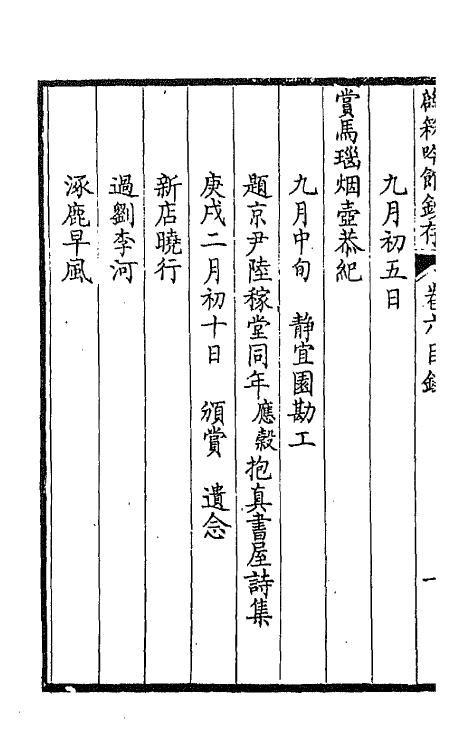 薜箖吟館鈔存 卷六目錄 一
九月初五日
賞馬瑙烟壺恭紀
九月中旬 靜宜園勘工
題京尹陸稼堂同年應穀抱真書屋詩集
庚戌二月初十日 頒賞 遺念
新店曉行
過劉李河
涿鹿早風